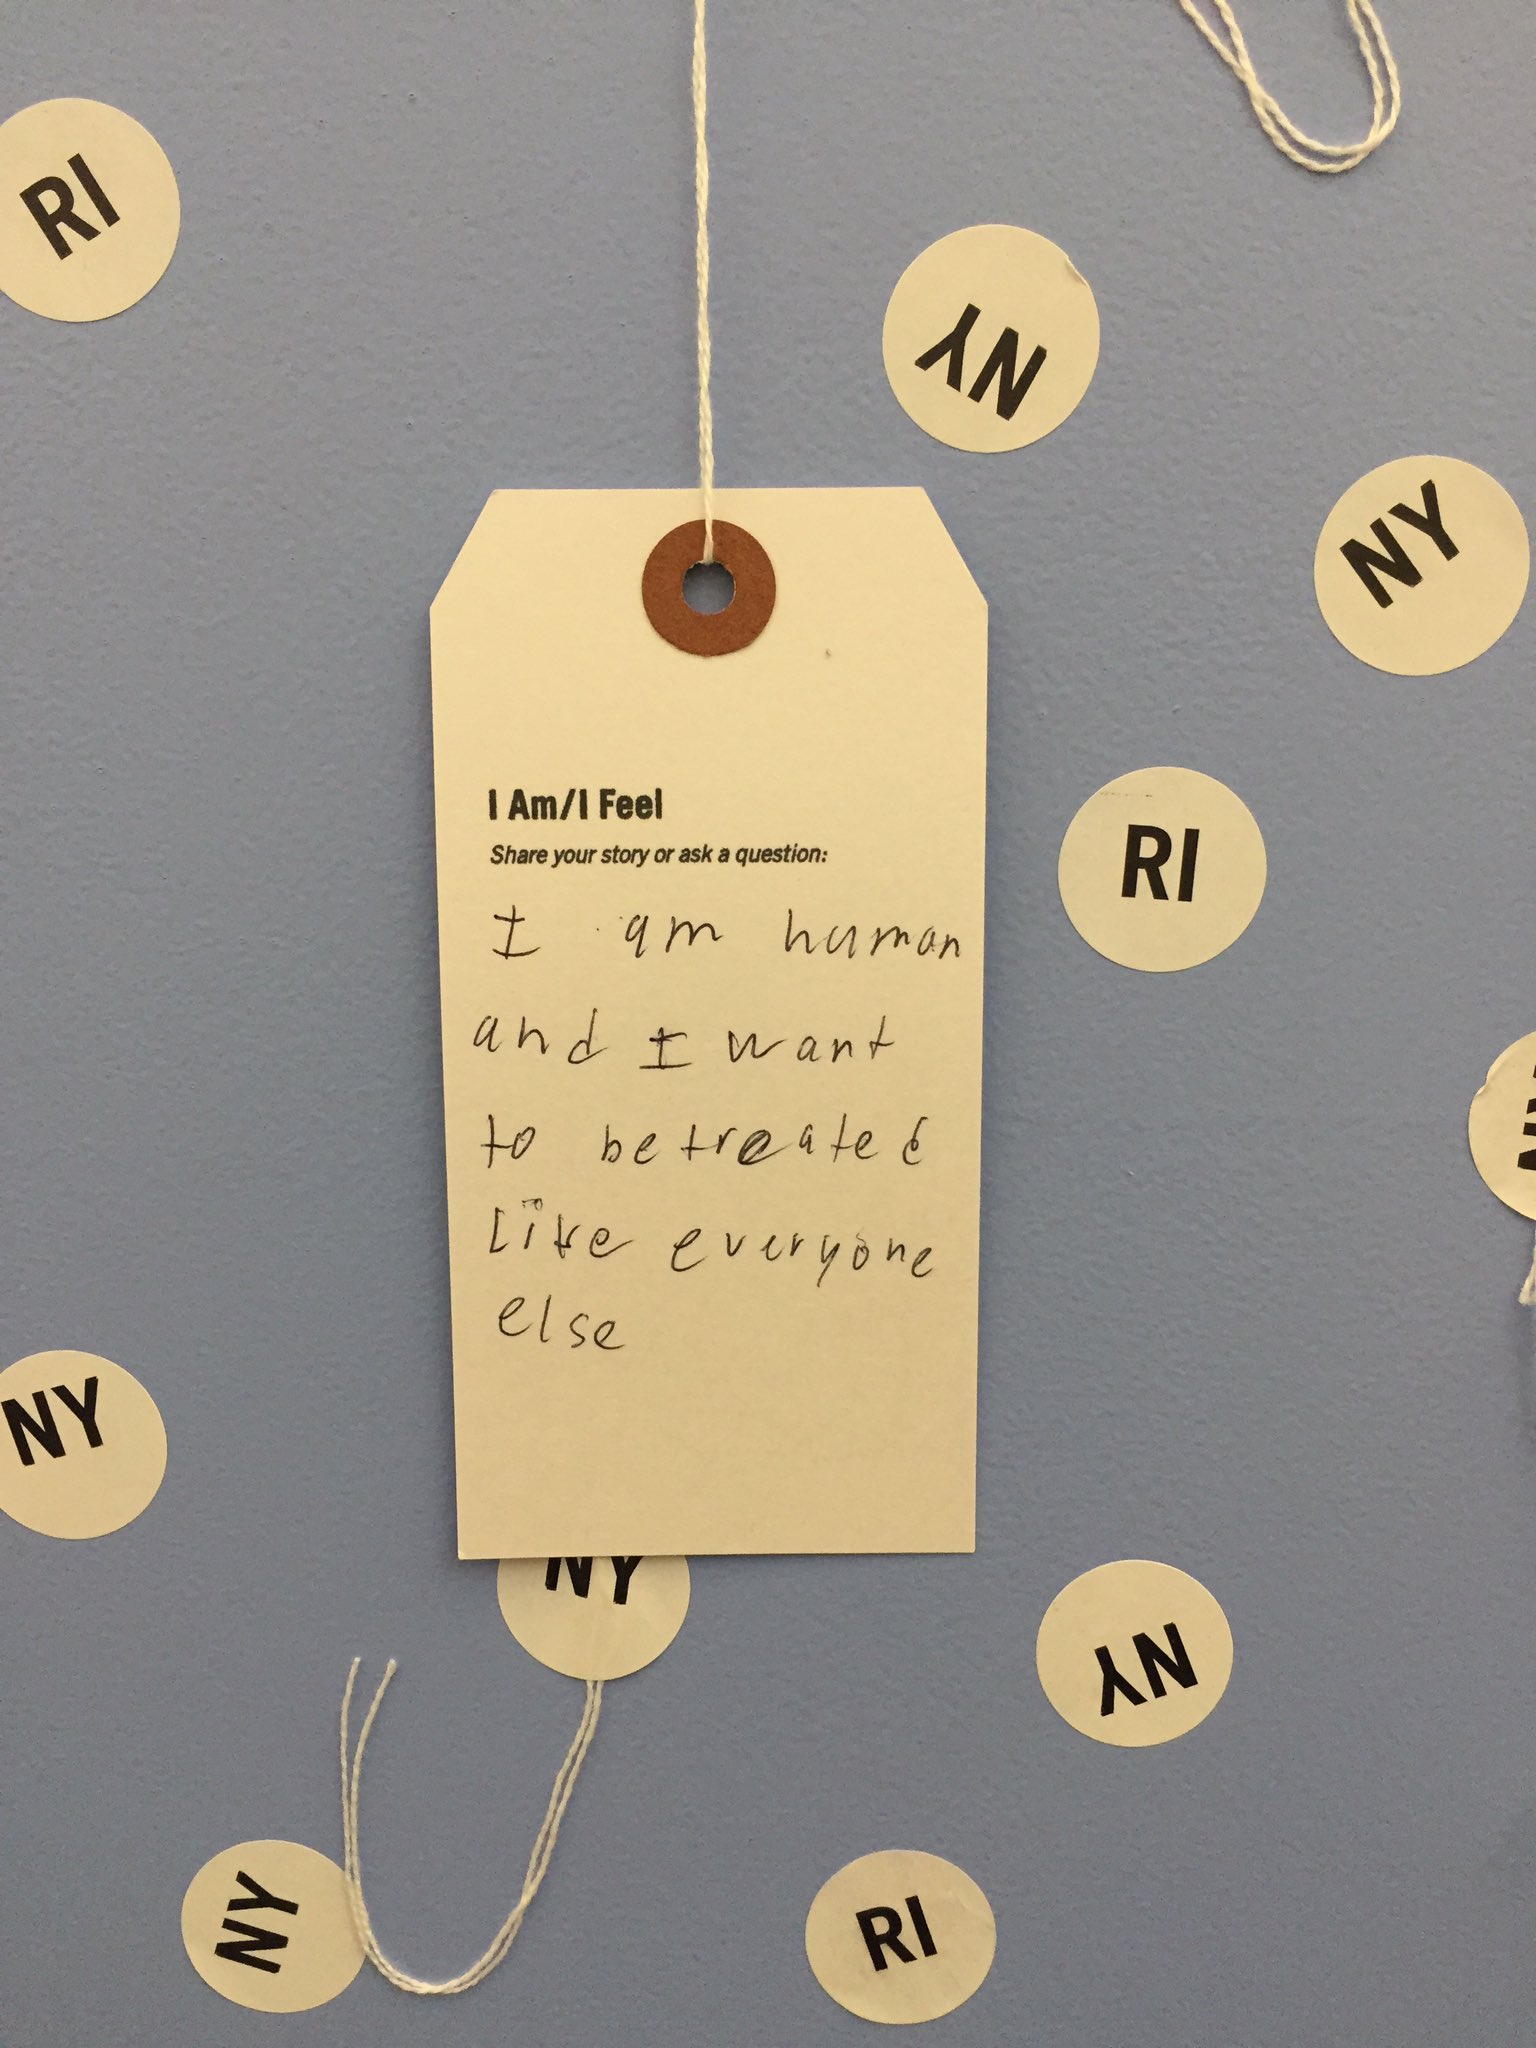 RI
NY
NY
I Am/I Feel
Share your story or ask a question:
I am human
and I want
to be treated
like everyone
else
RI
NY
NY
NY
NY
RI